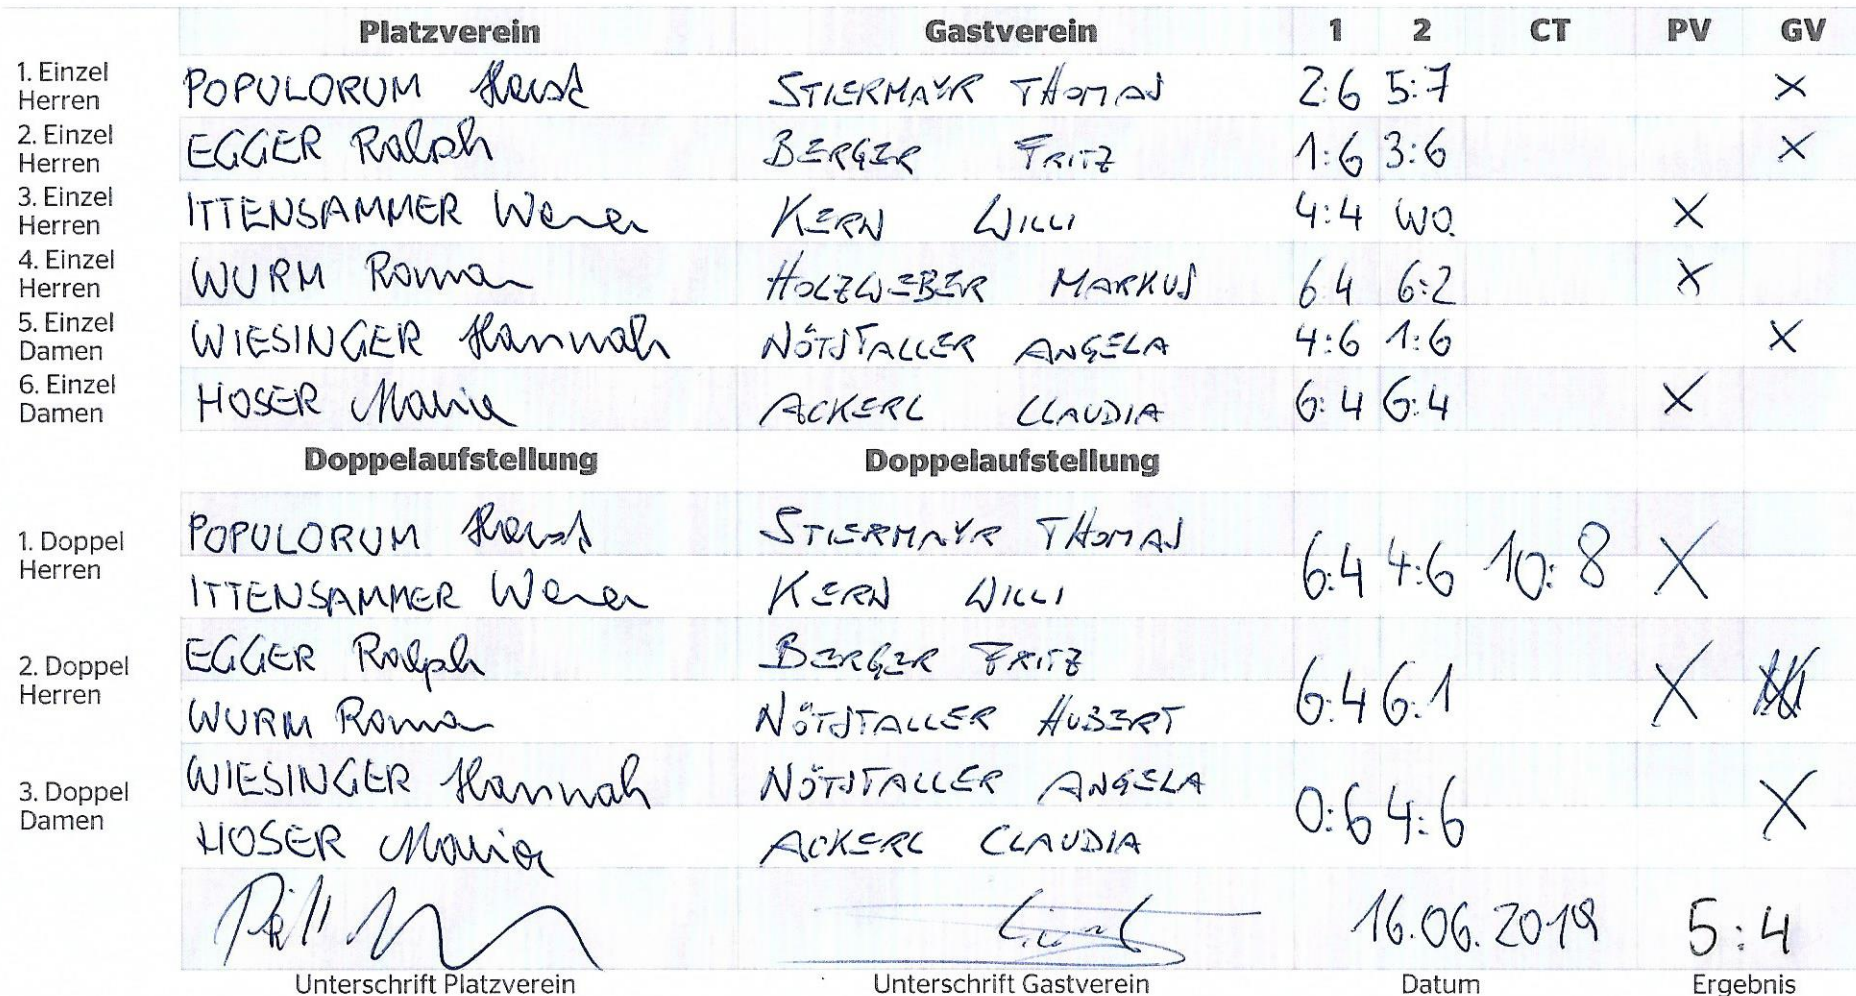 Platzverein Gastverein 1 2 CT PV GV
1. Einzel
Herren
POPULORUM Horst STIERMAYR THOMAS 2:6 5:7 X
2. Einzel
Herren
EGGER Ralph BERGER FRITZ 1:6 3:6 X
3. Einzel
Herren
ITTENSAMMER Werner KERN WILLI 4:4 WO. X
4. Einzel
Herren
WURM Roman HOLZWEBER MARKUS 6 4 6:2 X
5. Einzel
Damen
WIESINGER Hannah NÖTSTALLER ANGELA 4:6 1:6 X
6. Einzel
Damen
HOSER Maria ACKERL CLAUDIA 6:4 6:4 X
Doppelaufstellung Doppelaufstellung
1. Doppel
Herren
POPULORUM Horst STIERMAYR THOMAS
6:4 4:6 10:8 X
ITTENSAMMER Werner KERN WILLI
2. Doppel
Herren
EGGER Ralph BERGER FRITZ
6:4 6:1 X
WURM Roman NÖTSTALLER HUBERT
3. Doppel
Damen
WIESINGER Hannah NÖTSTALLER ANGELA
0:6 4:6 X
HOSER Maria ACKERL CLAUDIA
16.06.2019 5:4
Unterschrift Platzverein Unterschrift Gastverein Datum Ergebnis